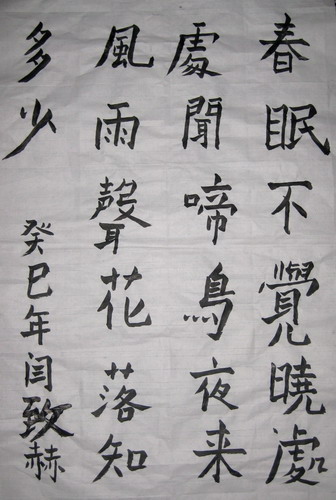 春眠不覺曉處
處聞啼鳥夜来
風雨聲花落知
多少
癸巳年闫致赫